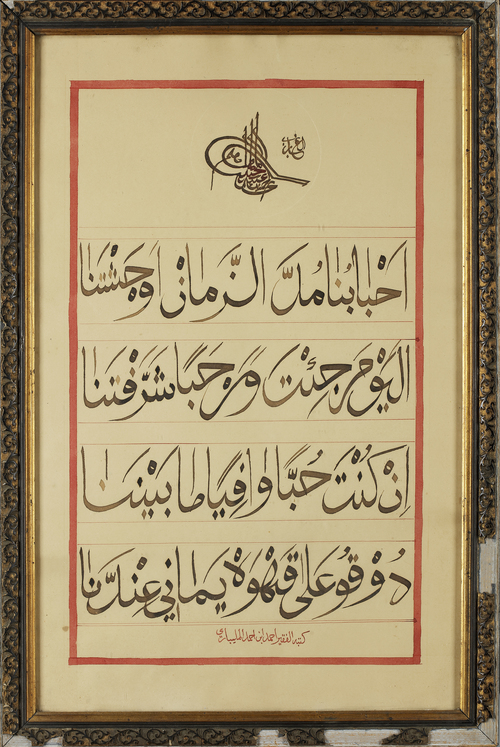 اَحْبابُنا مُدَّ الزَّمانْ اَوْحَشْتَنا
اَليَوْمَ جِئْتَ وَمَرْحَبًا شَرَّفْتَنا
اِنْ كُنْتَ حُبًّا وافِيًا طابَيْنَنا
دُوْقُو عَلى قَهْوَهْ يَماني عِنْدَنا
كتبه الفقير احمد ابن احمد المليباري